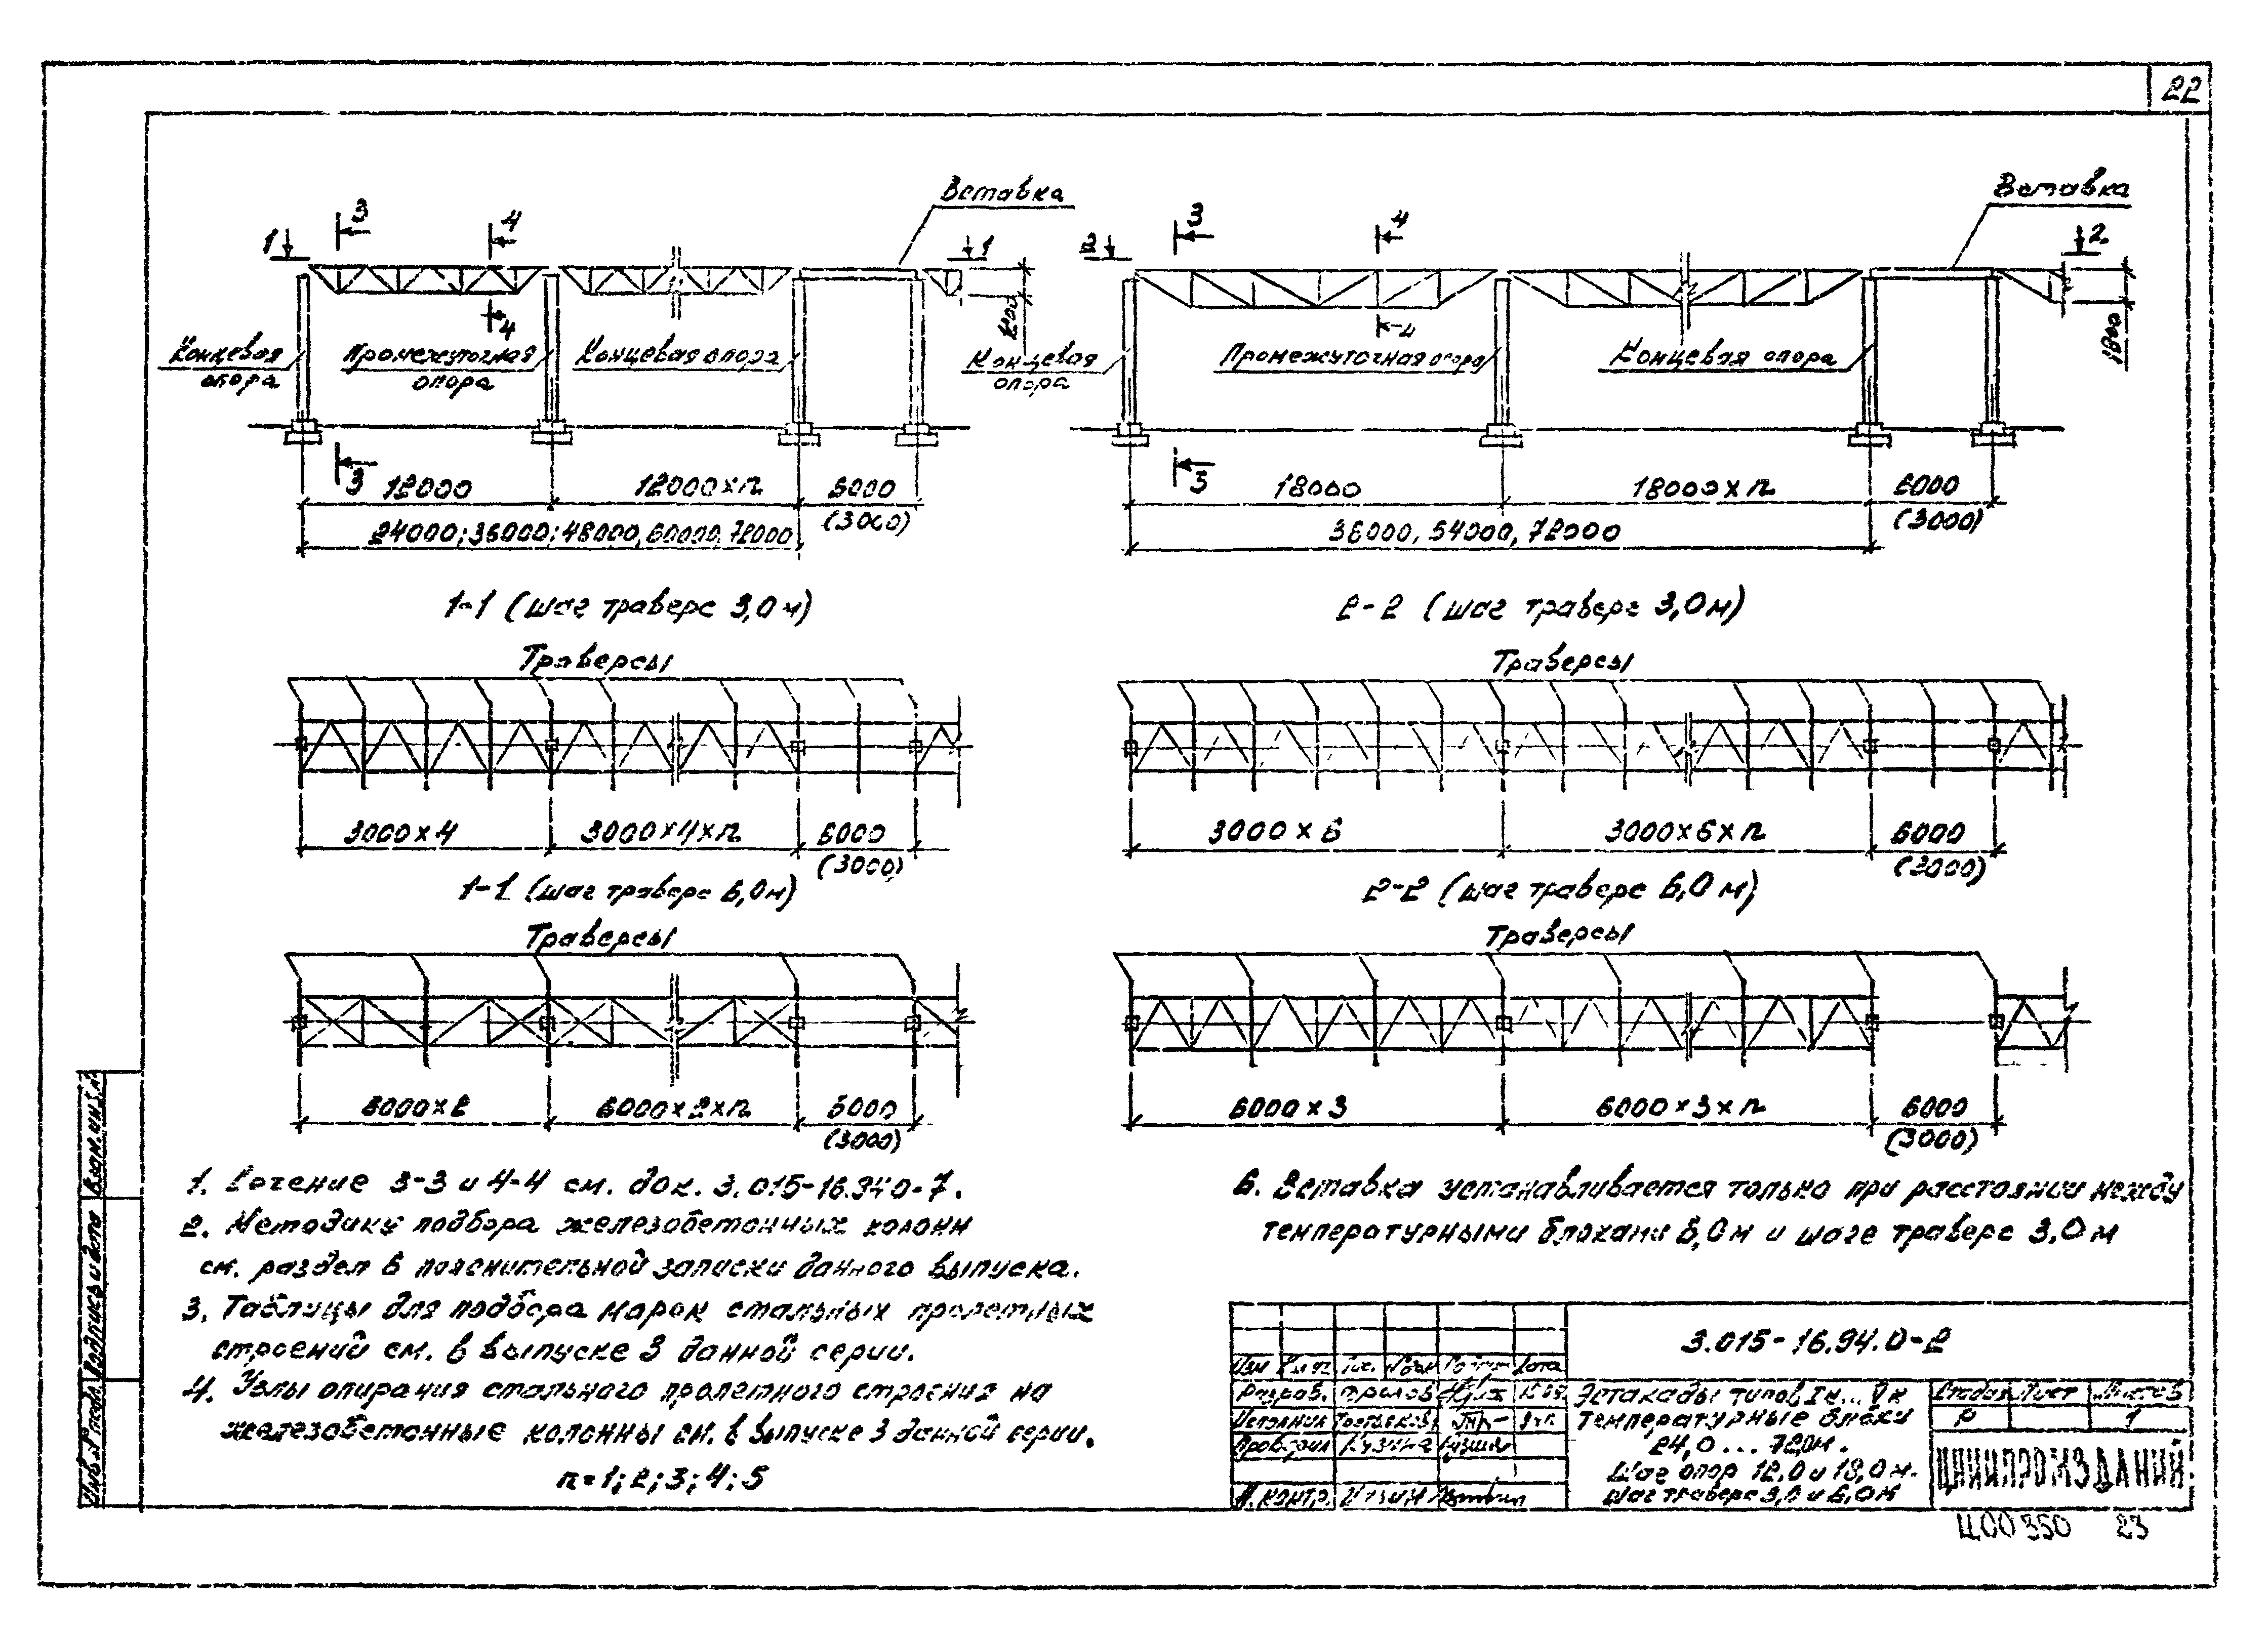 22
Вставка
Вставка
3
4
3
4
1
1
2
2
4
4
1800
Концевая
опора
Промежуточная
опора
Концевая опора
Концевая
опора
Промежуточная опора
Концевая опора
3
3
12000
12000×n
6000
(3000)
24000; 36000; 48000, 60000, 72000
18000
18000×n
6000
(3000)
36000, 54000, 72000
1-1 (шаг траверс 3,0м)
2-2 (шаг траверс 3,0м)
Траверсы
Траверсы
3000×4
3000×4×n
6000
(3000)
3000×6
3000×6×n
6000
(3000)
1-1 (шаг траверс 6,0м)
2-2 (шаг траверс 6,0м)
Траверсы
Траверсы
6000×2
6000×2×n
6000
(3000)
6000×3
6000×3×n
6000
(3000)
1. Сечение 3-3 и 4-4 см. док. 3.015-16.94.0-7.
2. Методику подбора железобетонных колонн
см. раздел 6 пояснительной записки данного выпуска.
3. Таблицы для подбора марок стальных пролетных
строений см. в выпуске 3 данной серии.
4. Узлы опирания стального пролетного строения на
железобетонные колонны см. в выпуске 3 данной серии.
n=1; 2; 3; 4; 5
6. Вставка устанавливается только при расстоянии между
температурными блоками 6,0м и шаге траверс 3,0м
3.015-16.94.0-2
Изм
Дата
Разраб. Фролов
Исполнил Третьякова
Проверил Кузина
Н. контр. Кузина
Эстакады типов
температурные блоки
24,0 ... 72,0м.
Шаг опор 12,0 и 18,0 м.
Шаг траверс 3,0 и 6,0м
Стадия Лист Листов
Р 1
ЦНИИПРОМЗДАНИЙ
Ц00350 23
Инв.№ подл. Подпись и дата Взам. инв.№